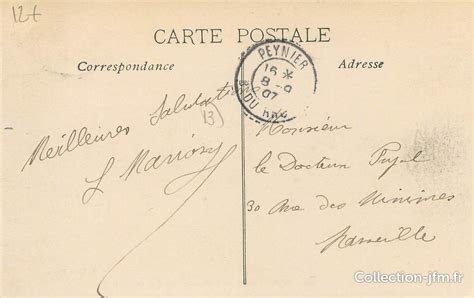 12t
CARTE POSTALE
Correspondance
Adresse
PEYNIER
16 *
8 - 9
07
BDU RH
13
Meilleures Salutations
Monsieur
le Docteur Pujol
30 Rue des Minimes
Marseille
Collection-jfm.fr